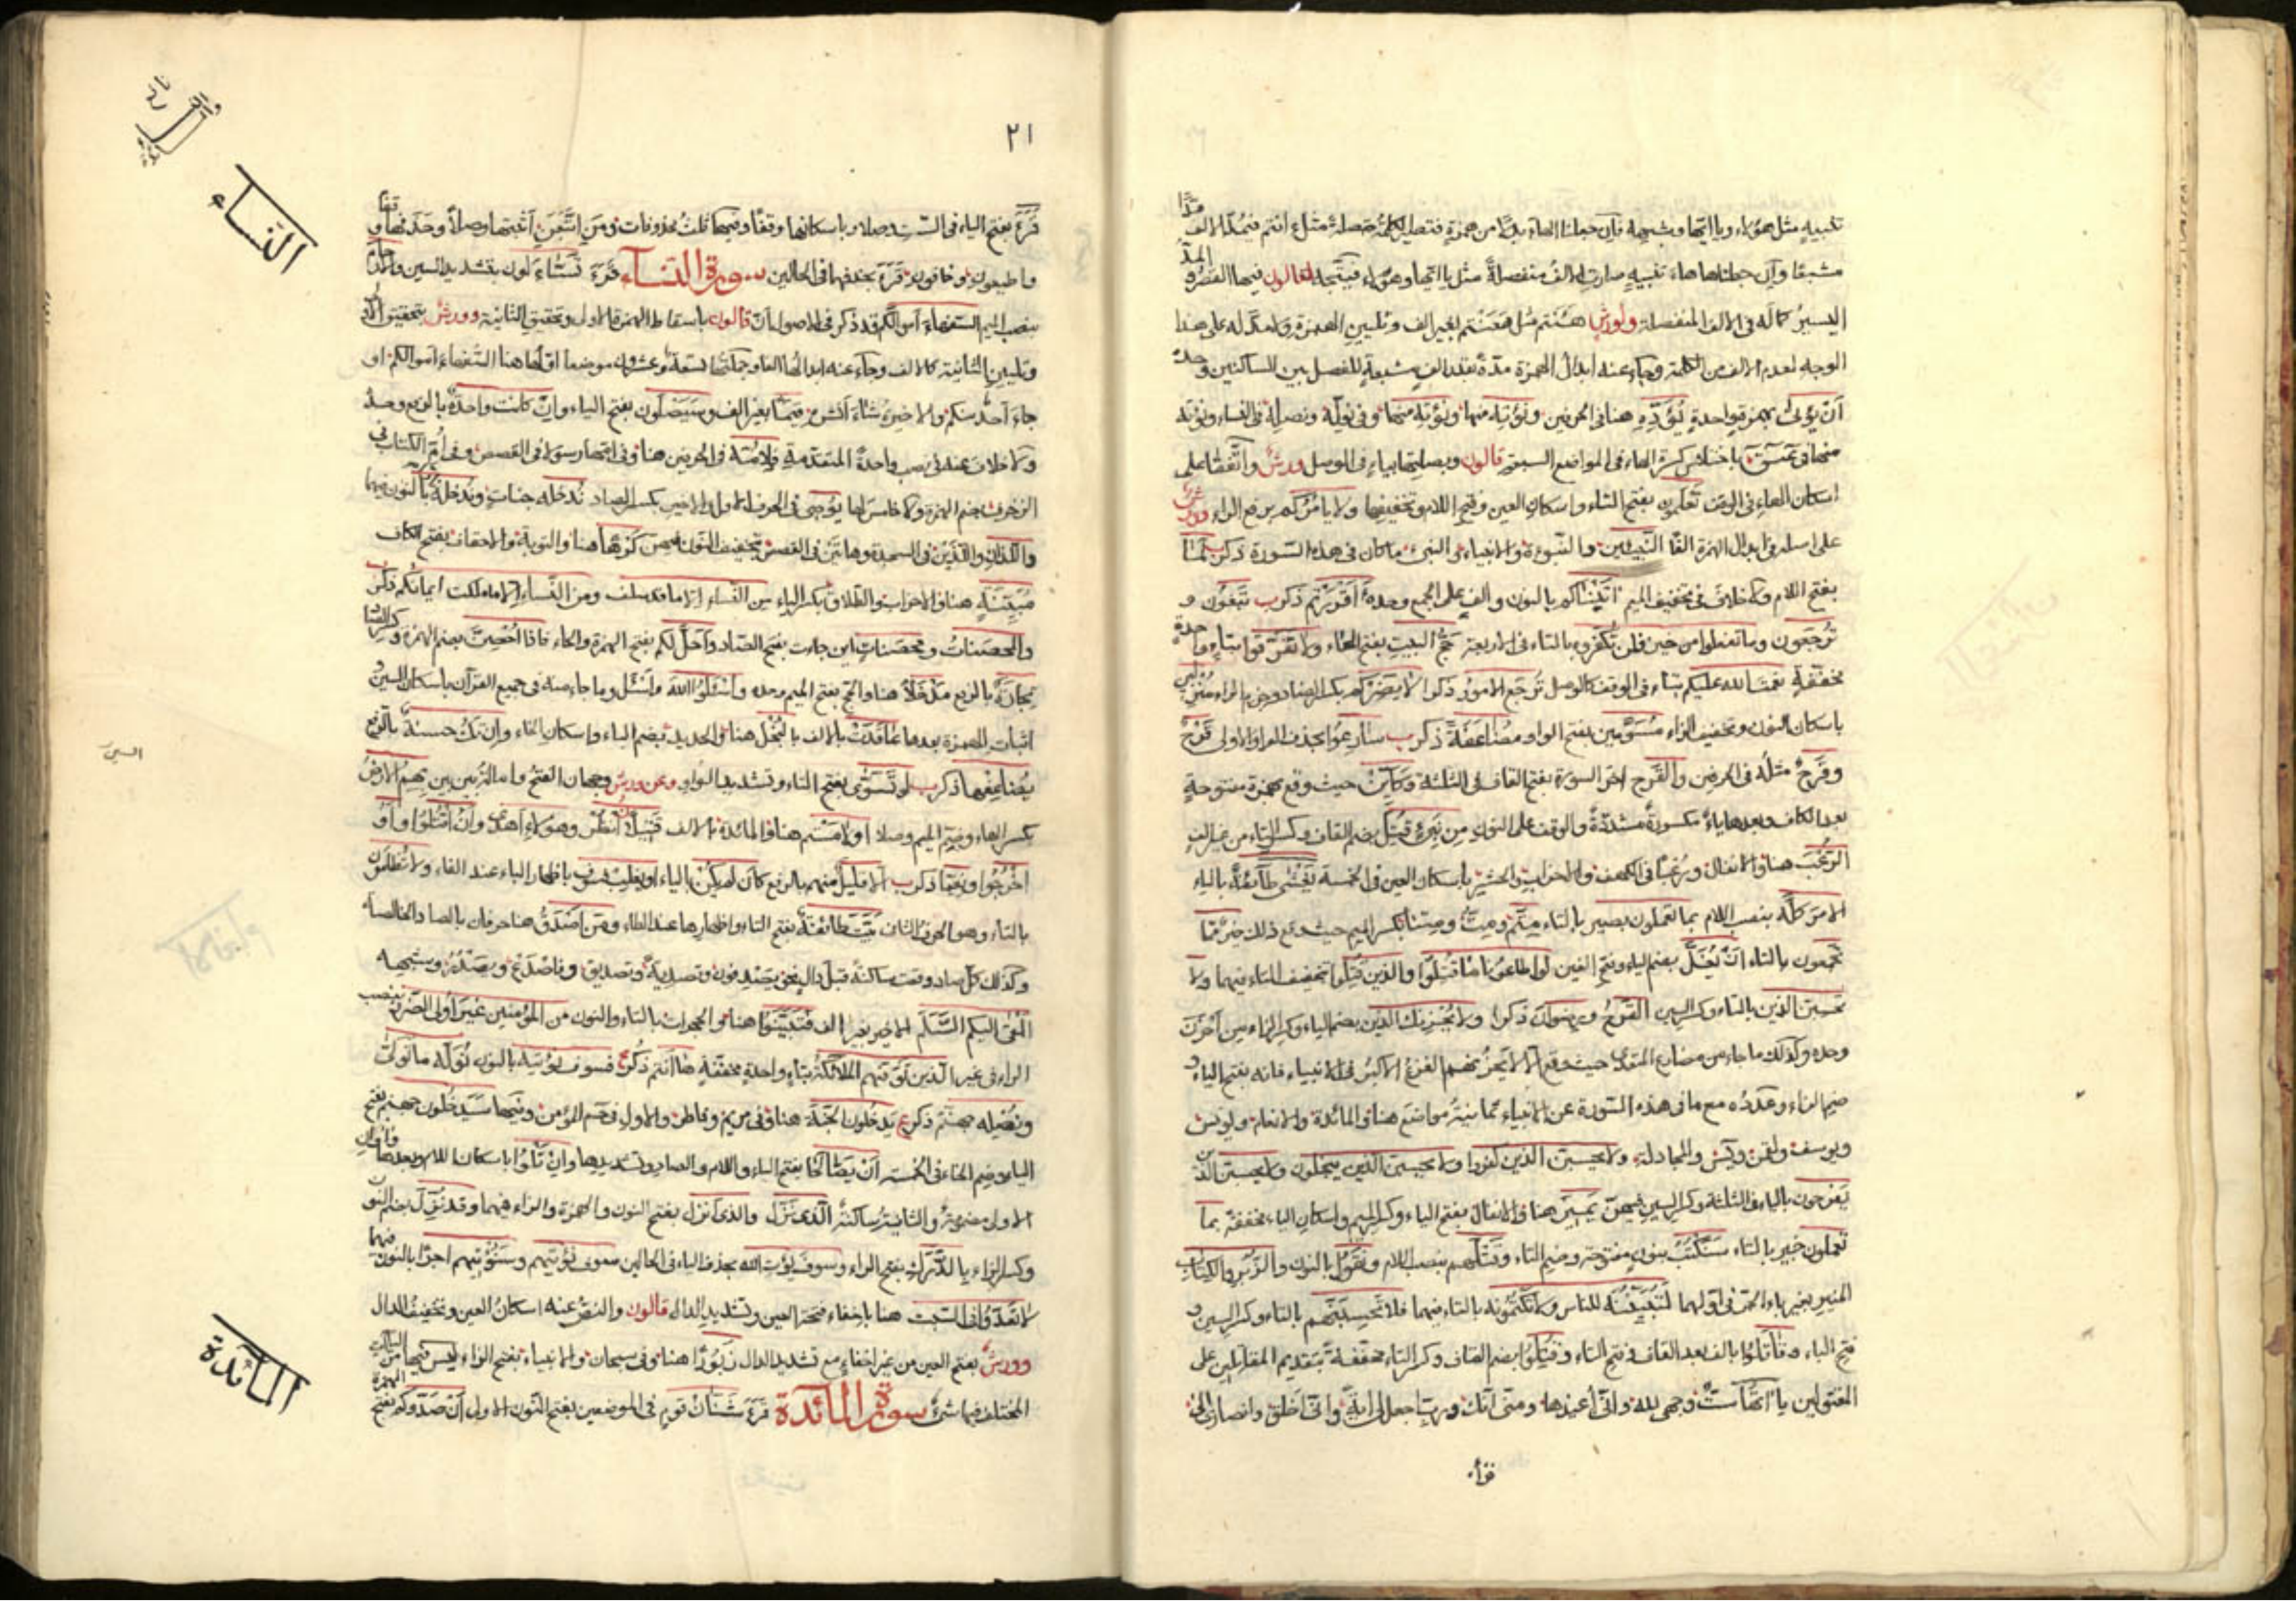 تنبيه مثل هؤلاء ويا ايها وشبهه فان جعلنا الهاء بدلا من همزة فتصير الكلمة متصلة مثل ءانتم فيمد الالف مدّا
مشبعا وان جعلناها هاء تنبيه صارت الالف منفصلة مثل يا ايها وهؤلاء فيتجه لقالون فيها القصر و المدّ
اليسير كما له فى الالف المنفصلة ولورش هَٔنتم مثل هَعَنتم بغير الف وتليين الهمزة ولا مدّ له على هذا
الوجه لعدم الالف من الكلمة وجاء عنه ابدال الهمزة مدّة بقدر الف مشبعة للفصل بين الساكنين وحدة
أن يؤتى بهمزة واحدة يؤده هنا فى الحرفين ونؤته منها ونؤته منها وفى نوله ونصله فى النساء ونؤته
منها فى عسق باختلاس كسرة الهاء فى المواضع السبعة قالون وبصلتها بياء فى الوصل ورش واتفقا على
اسكان الهاء فى الوقف تَعْلَمون بفتح التاء واسكان العين وفتح اللام وتخفيفها ولا يأمركم برفع الراء وورش
على اصله فى ابدال الهمزة الفا النبيئين والنبوءة والانبياء والنبىء ما كان فى هذه السورة ذكر لَمَا
بفتح اللام ولا خلاف فى تخفيف الميم ءاتيناكم بالنون والف على الجمع وحده أأقررتم ذكر تبغون و
ترجعون وما تفعلوا من خير فلن تكفروه بالتاء فى الاربعة حَج البيت بفتح الحاء ولا تفرقوا بتاء واحدة
مخففة نعمت الله عليكم بتاء فى الوقف كالوصل تُرجَع الامور ذكر لا يَضِرْكم بكسر الضاد وجزم الراء مُنْزَلين
باسكان النون وتخفيف الزاء مسوَّمين بفتح الواو مضاعفة ذكر سارعوا بحذف الواو الاولى قَرْح
وقَرْح مثله فى الحرفين والقَرْح اخر السورة بفتح القاف فى الثلثة وكأيّن حيث وقع بهمزة مفتوحة
بعد الكاف وبعدها ياء مكسورة مشددة والوقف على النون من نبىء قُتِل بضم القاف وكسر التاء من غير الف
الرعْب هنا والانفال ورعْبا فى الكهف والاحزاب والحشر باسكان العين فى الخمسة يَغشى طائفة بالياء
الامر كلَّه بنصب اللام بما تعملون بصير بالتاء مِتّم ومِتّ ومِتنا بكسر الميم حيث وقع ذلك خير مما
تجمعون بالتاء أن يُغَلّ بضم الياء وفتح الغين لو اطاعونا ما قتلوا والذين قُتِلوا بتخفيف التاء فيهما ولا
تحسِبن الذين بالتاء وكسر السين القرح ورضوان ذكرا ولا يُحزِنك الذين بضم الياء وكسر الزاء من أحزن
وحده وكذلك ما جاء من مضارع المتعدى حيث وقع الا لا يَحزُنهم الفزع الاكبر فى الانبياء فانه بفتح الياء و
ضم الزاء وعدده مع ما فى هذه السورة عن الانبياء ثمانية مواضع هنا والمائدة والانعام ويونس
ويوسف ولقمن ويس والمجادلة ولا يحسبن الذين كفروا ولا يحسبن الذين يبخلون ولا يحسبن الذين
يفرحون بالياء فى الثلاثة وكسر السين فيهن يَميز هنا والانفال بفتح الياء وكسر الميم واسكان الياء مخففة بما
تعملون خبير بالتاء سنكتب بنون مفتوحة وضم التاء وقتلَهم بنصب اللام ونقول بالنون والزبر والكتاب
المنير بغير باء الجر فى اولهما لتبيننه للناس ولا تكتمونه بالتاء فيهما فلا تحسبنهم بالتاء وكسر السين و
فتح الباء وقاتلوا بالف بعد القاف وفتح التاء وقُتِلوا بضم القاف وكسر التاء مخففة بتقديم المقاتلين على
المقتولين ياءاتها ست وجهى لله وانى أعيذها ومنى انك ورب اجعل لى اية وانى اخلق وانصارى الى
قرأ
٢١
قرأ بفتح الياء فى الست وصلا وباسكانها وقفا وفيها ثلث محذوفات ومن اتبعن أثبتها وصلا وحذفها وقفا
واطيعون وخافون قرأ بحذفهما فى الحالين سورة النساء قرأ تسَّاءلون بتشديد السين والارحام
بنصب الميم السفهاء أموالكم قد ذكر فى الاصول ان قالون باسقاط الهمزة الاولى وتحقيق الثانية وورش بتحقيق الاولى
وتليين الثانية كالالف وجاء عنه ابدالها الفا وجملتها تسعة وعشرون موضعا اولها هنا السفهاء اموالكم او
جاء أحد منكم والاخير شاء أنشره قيما بغير الف وسيَصلون بفتح الياء وان كانت واحدة بالرفع وحده
ولا خلاف عنه فى نصب واحدة المتقدمة فلأمه فى الحرفين هنا وفى امها رسولا فى القصص وفى أم الكتاب فى
الزخرف بضم الهمزة ولا خامس لها يوصِى فى الحرف الاول والاخير بكسر الصاد ندخله جنات وندخله نارا بالنون فيهما
واللذان واللذين فى السجدة وهاتين فى القصص بتخفيف النون فيهن كَرها هنا والتوبة والاحقاف بفتح الكاف
مبيِّنة هنا والاحزاب والطلاق بكسر الياء من النساء إلا ما قد سلف ومن النساء إلا ما ملكت ايمانكم ذكر
والمحصَنات ومحصَنات اين جاءت بفتح الصاد وأحَلّ لكم بفتح الهمزة والحاء فاذا أُحصِنّ بضم الهمزة وكسر الصاد
تجارةٌ بالرفع مَدخلا هنا والحج بفتح الميم وحده واسئلوا الله واسئل وما جاء منه فى جميع القرآن باسكان السين و
اثبات الهمزة بعدها عاقدت بالالف بالبُخْل هنا والحديد بضم الباء واسكان الخاء وإن تك حسنةٌ بالرفع
يضاعفها ذكر لو تَسَّوّى بفتح التاء وتشديد السين والواو وعن ورش وجهان الفتح وامالة بين بين بهم الارض
بكسر الهاء وضم الميم وصلا او لامستم هنا والمائدة بالالف فتيلا انظر وهؤلاء أهدى وأن اقتلوا او
اخرجوا ونعما ذكر الا قليلٌ منهم بالرفع كأن لم يكن بالياء او يغلب فسوف باظهار الباء عند الفاء ولا تظلمون
بالتاء وهو الحرف الثانى بيت طائفة بفتح التاء واظهارها عند الطاء ومن أصدق هنا حرفان بالصاد الخالصة
وكذلك كل صاد وقعت ساكنة قبل دال نحو يصدفون وتصدية وتصديق وفاصدع ويصدر وشبهه
القى اليكم السلَم الاخير بغير الف فتبينوا هنا والحجرات بالتاء والنون من المؤمنين غيرَ أولى الضرر بنصب
الراء فى غير الذين توفيهم الملائكة بتاء واحدة مخففة هاأنتم ذكر فسوف نؤتيه بالنون نوله ما تولى
ونصله جهنم ذكر يَدخُلون الجنة هنا وفى مريم وفاطر والاول فى حم المؤمن وفيها سيَدخلون جهنم بفتح
الياء وضم الخاء فى الخمسة أن يصّالحا بفتح الياء واللام والصاد وتشديدها وان تلوُوا باسكان اللام وبعدها واوان
الاولى مضمومة والثانية ساكنة الذى نَزّل والذى أنزل بفتح النون والهمزة والزاء فيهما وقد نُزِّل بضم النون
وكسر الزاء يا الدرَك بفتح الراء وسوف يؤت الله بحذف الياء فى الحالين سوف نؤتيهم وسنؤتيهم اجرا بالنون فيهما
لا تعدّوا فى السبت هنا باخفاء فتحة العين وتشديد الدال قالون والنص عنه اسكان العين وتخفيف الدال
وورش بفتح العين من غير اخفاء مع تشديد الدال زَبورا هنا وفى سبحان والانبياء بفتح الزاء ليس فيها من الياآت
المختلف فيها شىء سورة المائدة قرأ شنَآن قوم فى الموضعين بفتح النون الاولى أن صدوكم بفتح الهمزة
النساء
السين
المائدة